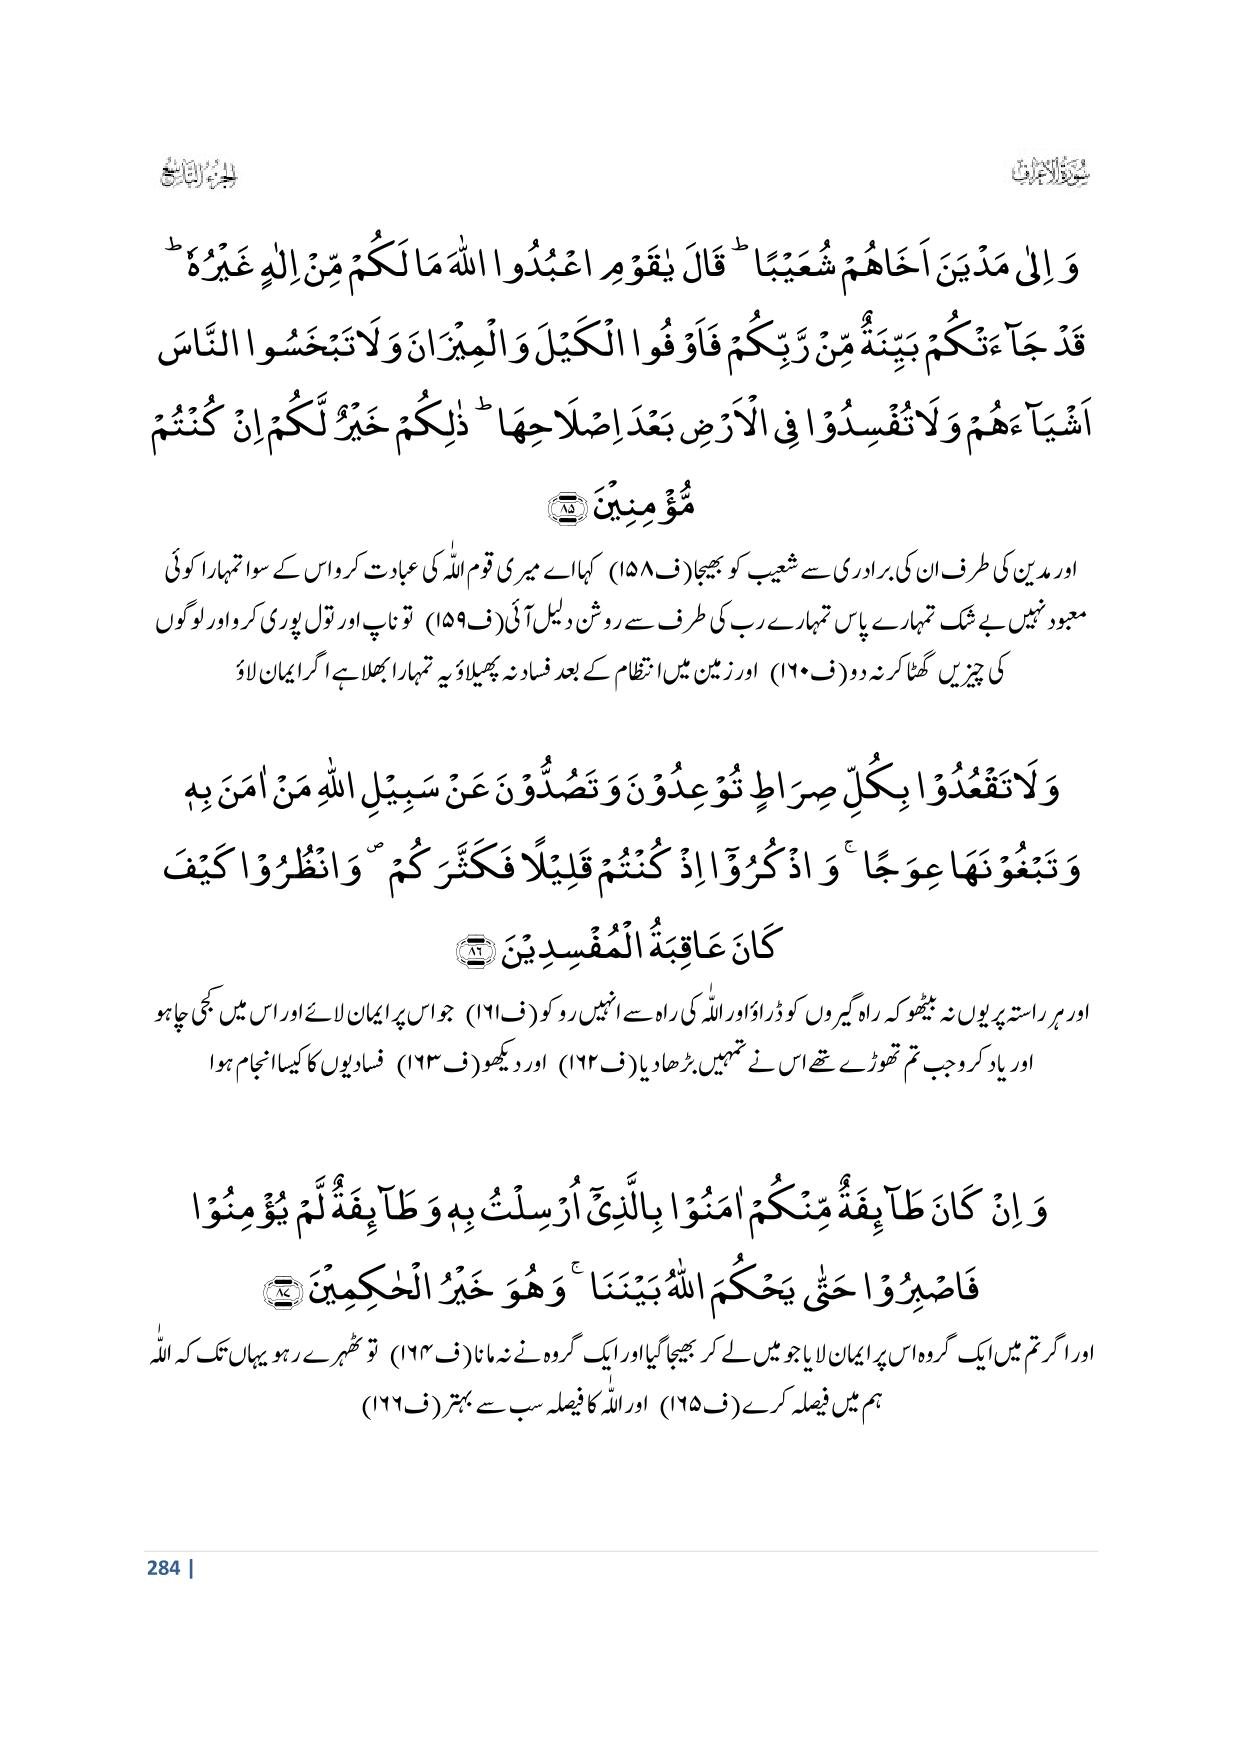 سُوْرَةُ الْاَعْرَافِ
الجزء التاسع
وَ اِلٰى مَدْیَنَ اَخَاهُمْ شُعَیْبًاؕ قَالَ یٰقَوْمِ اعْبُدُوا اللّٰهَ مَا لَكُمْ مِّنْ اِلٰهٍ غَیْرُهٗؕ
قَدْ جَآءَتْكُمْ بَیِّنَةٌ مِّنْ رَّبِّكُمْ فَاَوْفُوا الْكَیْلَ وَ الْمِیْزَانَ وَ لَا تَبْخَسُوا النَّاسَ
اَشْیَآءَهُمْ وَ لَا تُفْسِدُوْا فِی الْاَرْضِ بَعْدَ اِصْلَاحِهَاؕ ذٰلِكُمْ خَیْرٌ لَّكُمْ اِنْ كُنْتُمْ
مُّؤْمِنِیْنَ ﴿۸۵﴾
اور مدین کی طرف ان کی برادری سے شعیب کو بھیجا(ف۱۵۸) کہا اے میری قوم اللّٰہ کی عبادت کرو اس کے سوا تمہارا کوئی
معبود نہیں بے شک تمہارے پاس تمہارے رب کی طرف سے روشن دلیل آئی(ف۱۵۹) تو ناپ اور تول پوری کرو اور لوگوں
کی چیزیں گھٹا کر نہ دو(ف۱۶۰) اور زمین میں انتظام کے بعد فساد نہ پھیلاؤ یہ تمہارا بھلا ہے اگر ایمان لاؤ
وَ لَا تَقْعُدُوْا بِكُلِّ صِرَاطٍ تُوْعِدُوْنَ وَ تَصُدُّوْنَ عَنْ سَبِیْلِ اللّٰهِ مَنْ اٰمَنَ بِهٖ
وَ تَبْغُوْنَهَا عِوَجًاۚ وَ اذْكُرُوْۤا اِذْ كُنْتُمْ قَلِیْلًا فَكَثَّرَكُمْ۪ وَ انْظُرُوْا كَیْفَ
كَانَ عَاقِبَةُ الْمُفْسِدِیْنَ ﴿۸۶﴾
اور ہر راستہ پر یوں نہ بیٹھو کہ راہ گیروں کو ڈراؤ اور اللّٰہ کی راہ سے انہیں روکو(ف۱۶۱) جو اس پر ایمان لائے اور اس میں کجی چاہو
اور یاد کرو جب تم تھوڑے تھے اس نے تمہیں بڑھا دیا(ف۱۶۲) اور دیکھو(ف۱۶۳) فسادیوں کا کیسا انجام ہوا
وَ اِنْ كَانَ طَآىِٕفَةٌ مِّنْكُمْ اٰمَنُوْا بِالَّذِیْۤ اُرْسِلْتُ بِهٖ وَ طَآىِٕفَةٌ لَّمْ یُؤْمِنُوْا
فَاصْبِرُوْا حَتّٰى یَحْكُمَ اللّٰهُ بَیْنَنَاۚ وَ هُوَ خَیْرُ الْحٰكِمِیْنَ ﴿۸۷﴾
اور اگر تم میں ایک گروہ اس پر ایمان لایا جو میں لے کر بھیجا گیا اور ایک گروہ نے نہ مانا(ف۱۶۴) تو ٹھہرے رہو یہاں تک کہ اللّٰہ
ہم میں فیصلہ کرے(ف۱۶۵) اور اللّٰہ کا فیصلہ سب سے بہتر(ف۱۶۶)
284 |